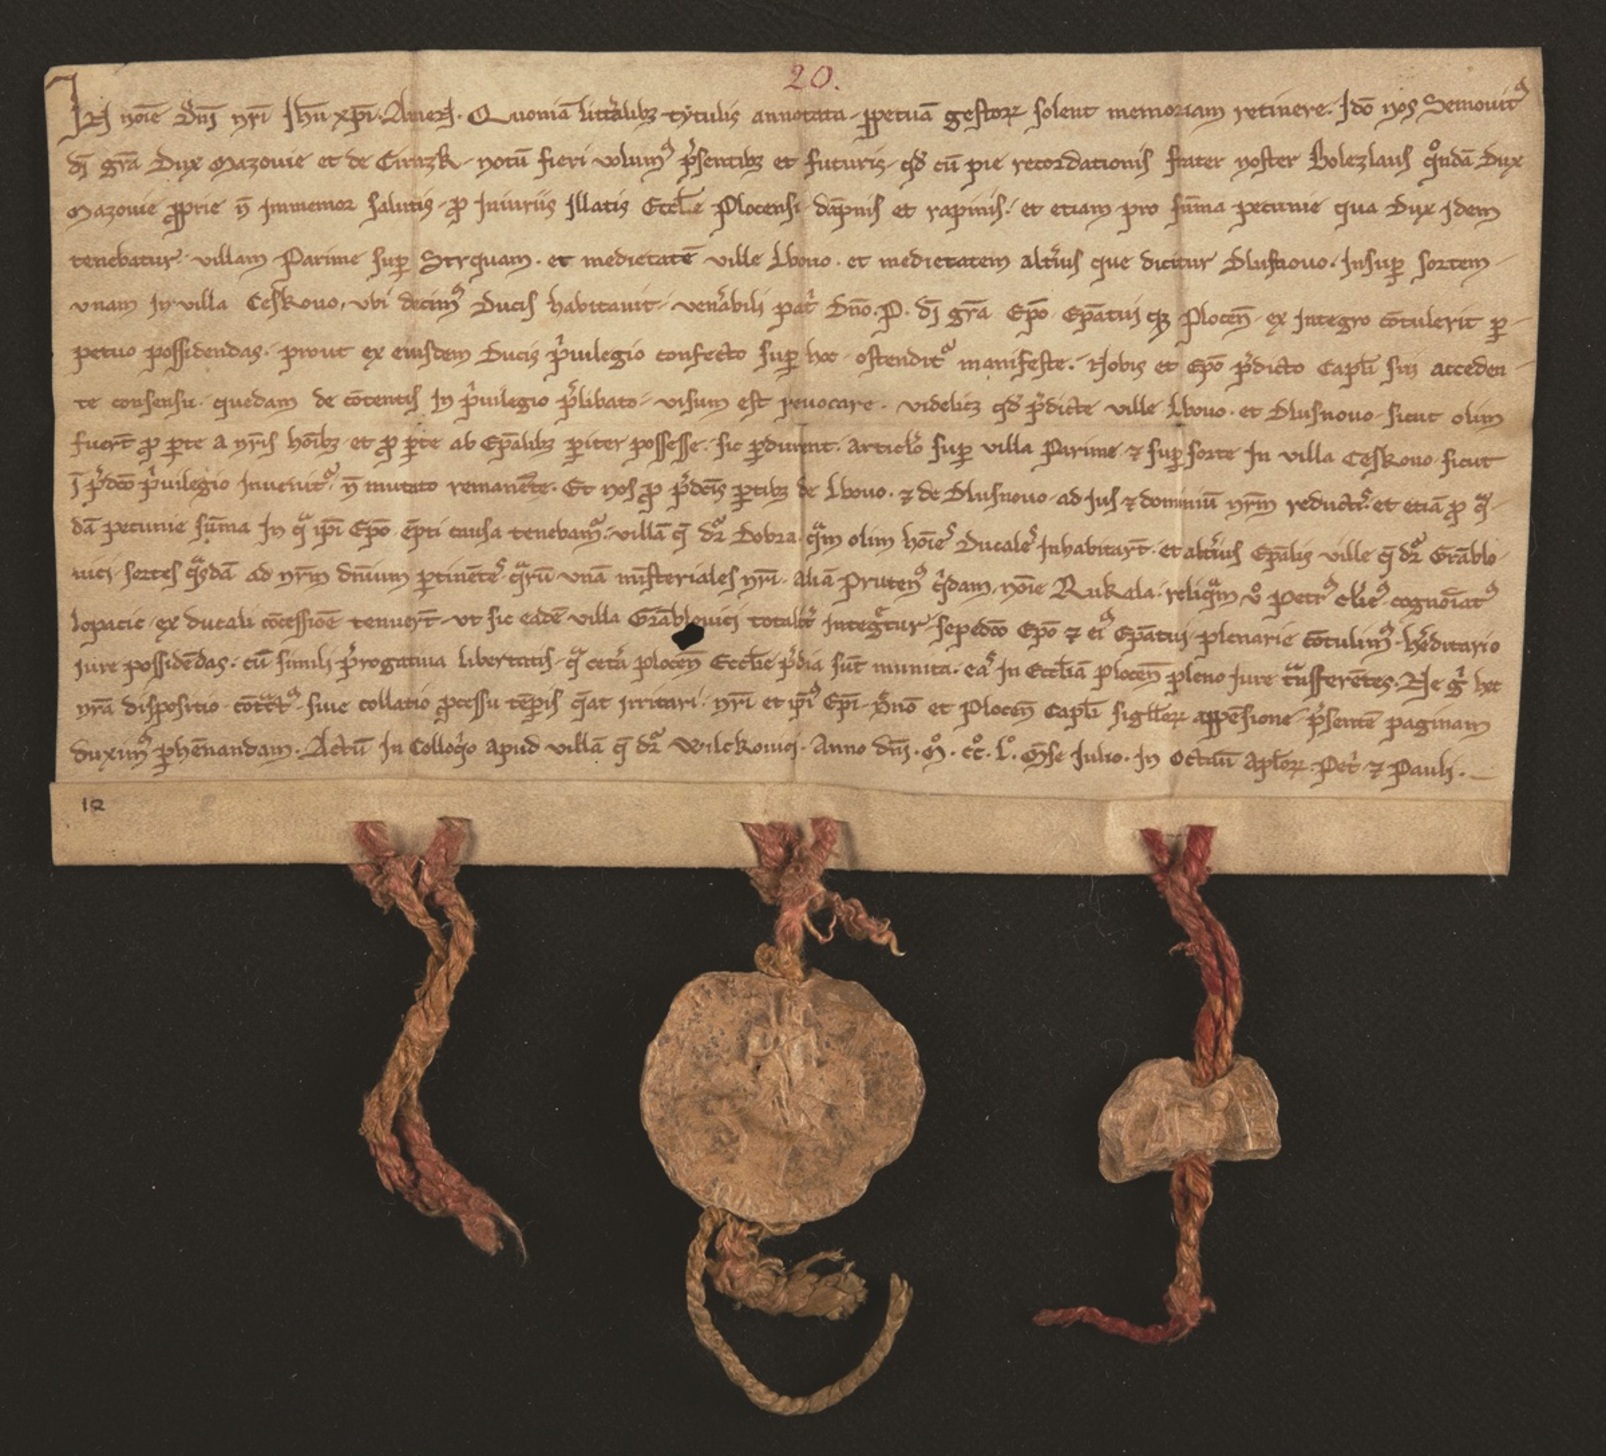 20.
IN noīe dn̄i nr̄i Jh̄u xp̄i. Amen. Quoniā litt̄alibz tytulis annotata ꝑpetuā gestoꝝ solent memoriam retinere. Idō nos Semouitꝰ
dī gr̄a Dux Mazouie et de Cirazk notū fieri uolumꝰ p̄sentibz et futuris qd̄ cū pie recordationis frater noster Bolezlaus qͦndā Dux
Mazouie ꝓprie n̄ inmemor salutis ꝓ Iniuriis Illatis Eccl̄ie Plocensi dāpnis et rapinis. et etiam pro sūma pecunie qua Dux idem
tenebatur. villam Parime suꝑ Strquam. et medietatē ville Lbouo. et medietatem alt̄ius que dicitur Dlusnouo. Insuꝑ sortem
vnam in villa Ceskouo, vbi decimꝰ Ducis habitauit. ven̄abili pat̄ Dn̄o. P. dī gr̄a Ep̄o Ep̄atui qꝫ Plocen̄ ex integro cōtulerit ꝑ
petuo possidendas. prout ex eiusdem Ducis p̄uilegio confecto suꝑ hoc ostenditᷣ manifeste. Nobis et Ep̄o p̄dicto Capl̄i sui acceden
te consensu. quedam de cōtentis in p̄uilegio p̄libato visum est reuocare. videlicz qd̄ p̄dicte ville Lbouo. et Dlusnouo sicut olim
fuer̄t ꝓ ꝑte a nr̄is hōibz et ꝓ ꝑte ab Ep̄alibz ꝑiter possesse. sic ꝑdurent. articl̄o suꝑ villa Parime ⁊ suꝑ sorte in villa Ceskouo sicut
ī p̄dc̄o p̄uilegio inuenitᷣ. n̄ mutato remanēte. Et nos ꝓ p̄dc̄is ꝑtibz de Lbouo. ⁊ de Dlusnouo ad ius ⁊ dominiū nr̄m reductis. et etiā ꝓ qͣ
dā pecunie sūma in qͣ ip̄i Ep̄o ēpti causa tenebamᷣ. villā q̄ dr̄ Dobra qͣm olim hōies Ducales inhabitar̄t. et alt̄ius Ep̄alis ville q̄ dr̄ Grāblo
uici sortes qͣsdā ad nr̄m dn̄ium ꝑtinētes qͣrū vnā mīsteriales nr̄i. aliā Prutenꝰ qͥdam. noīe Rukala. reliqͣm vͦ Petrꝰ cl̄icꝰ cognoīatꝰ
lopacic ex ducali cōcessiōe tenuer̄t. vt sic eadē villa Grāblouici totalit̄ integret᷑ur. sepedc̄o Ep̄o ⁊ eiꝰ Ep̄atui plenarie cōtulimꝰ. h̄editario
iure possidēdas. cū simili p̄rogatiua libertatis qͣ cet̄a plocen̄ Eccl̄ie p̄dia sūt munita. eas in Eccl̄iā Plocen̄ pleno iure tͣnsferētes. Ne gͥ hec
nr̄a dispositio cōtͣctꝰ siue collatio ꝓcessu tēꝑis q̄at irritari. nr̄i et ip̄iꝰ Ep̄i dn̄o et Plocen̄ Capl̄i sigill̄oꝝ appēsione p̄sentē paginam
duximꝰ ꝑhēnandam. Actū in Colloqͥo apud villā q̄ dr̄ Wilckouici. Anno dn̄i. Mͦ. ccͦ. Lͦ. mēse Iulio. in octauis Apl̄oꝝ Petͥ ⁊ Pauli.